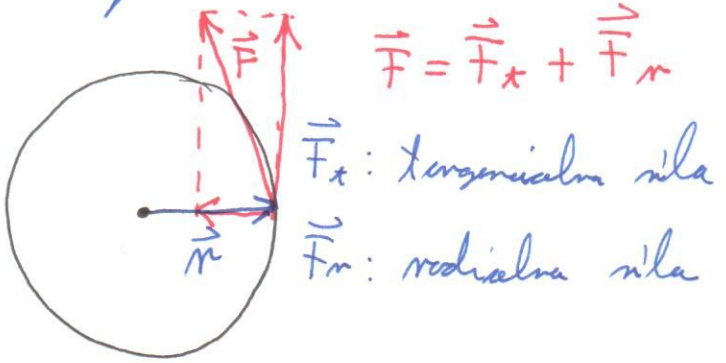 F⃗
F⃗ = F⃗t + F⃗r
F⃗t: tangencialna sila
r⃗
F⃗r: radialna sila